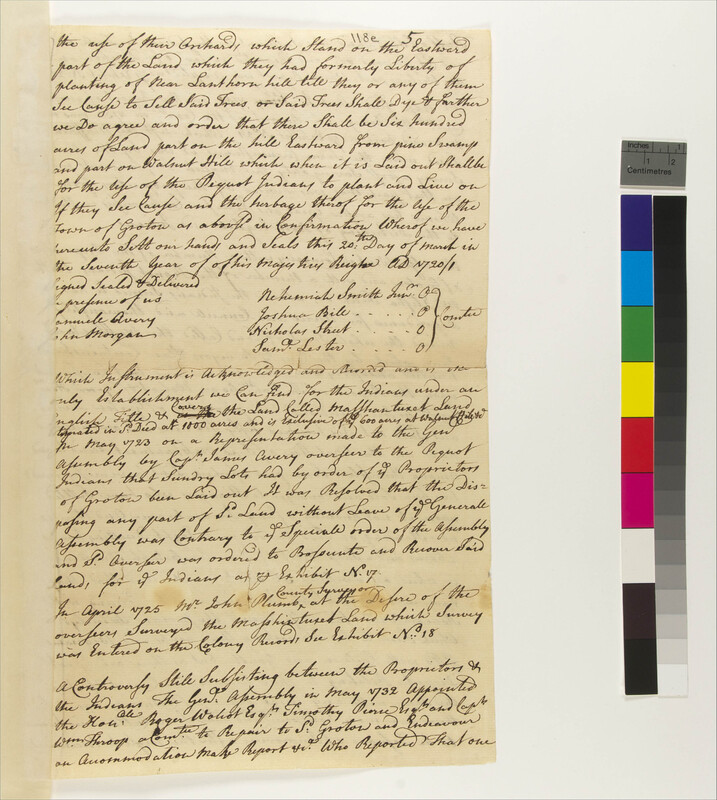 118e 5
the use of their Orchards which Stand on the Eastward
part of the Land which they had formerly Liberty of
planting of Near Lanthorn hill till they or any of them
See Cause to Sell Said Trees or Said Trees Shall Dye & farther
we Do agree and order that there Shall be Six hundred
acres of Land part on the hill Eastward from pine Swamp
and part on Walnut Hill which when it is Laid out Shall be
for the Use of the Pequot Indians to plant and Live on
If they See Cause and the herbage therof for the Use of the
Town of Groton as abovesd in Confirmation Wherof we have
hereunto Sett our hands and Seals this 20th Day of March in
the Seventh Year of of his Majesties Reighn AD 1720/1
igned Sealed & Delivered
presence of us
Nehemiah Smith Junr O
amuell Avery
Joshua Bill - - - - O
ohn Morgan
Nicholas Street - - O
Saml Lester - - - - O
Comtee
Which Instrument is Acknowledged and Recorded and is the
only Establishment we Can find for the Indians under an
English Title & Covers the Land Called Mashantuxet Land
Estimated in sd Deed at 1000 acres and is Exclusive of ye 600 acres at Walnut Hill &c
In May 1723 on a Representation made to the Genl
Assembly by Capt James Avery overseer to the Pequot
Indians that Sundry Lots had by order of ye Proprietors
of Groton been Laid out It was Resolved that the Dis=
posing any part of sd Land without Leave of ye Generall
Assembly was Contrary to ye Speciale order of the Assembly
and sd Overseer was ordered to Prosecute and Recover Said
Lands for ye Indians as Exhibit No 17
County Surveyor
In April 1725 Mr John Plumb, at the Desire of the
overseers Surveyed the Mashintuxet Land which Survey
was Entered on the Colony Records See Exhibit No 18
A Controversy Still Subsisting between the Proprietors &
the Indians The Genl Assembly in May 1732 Appointed
the Honble Roger Wolcot Esqr Timothy Pierce Esqr and Captn
Wm Throop a Comtee to Repair to sd Groton and Endeavour
an Accommodation Make Report &c Who Reported that one
Inches 1
1 2
Centimetres